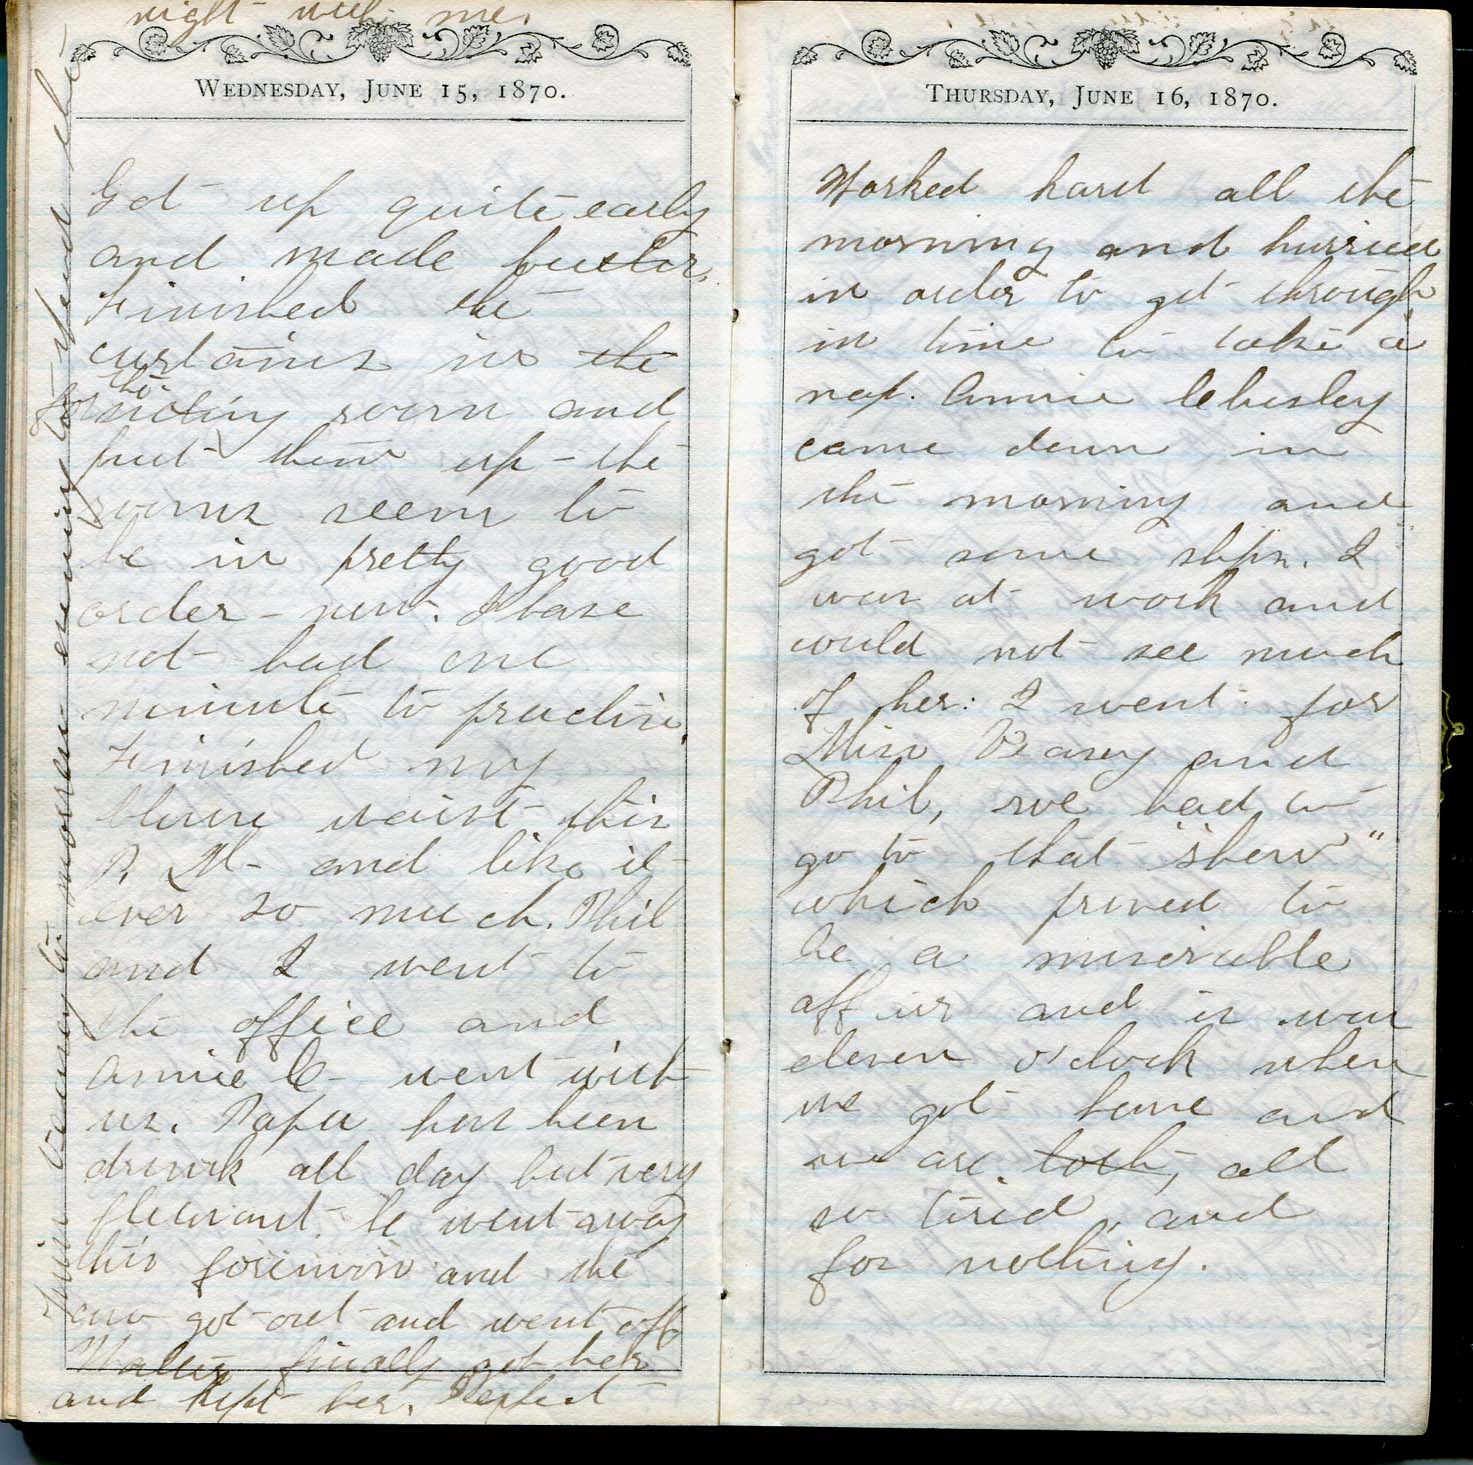 WEDNESDAY, JUNE 15, 1870.
Got up quite early
and made butter,
Finished the
curtains in the
for the sitting room and
put them up - the
rooms seem to
be in pretty good
order - now. I have
not had one
minute to practise.
Finished my
blouse waist this
P. M. and like it
ever so much. Phil
and I went to
the office and
Annie C- went with
us. Papa has been
drunk all day but very
pleasant. he went away
this forenoon and the
cow got out and went off
Walter finally got her
and kept her. Expect
Miss Veasey to-morrow evening to spend the
night with me.
THURSDAY, JUNE 16, 1870.
Worked hard all the
morning and hurried
in order to get through
in time to take a
nap. Annie Chesley
came down in
the morning and
got some slips. I
was at work and
could not see much
of her: I went for
Miss Veasey and
Phil, we had to
go to that "show"
which proved to
be a miserable
affair and it was
eleven o'clock when
we got home and
we are all
so tired, and
for nothing.